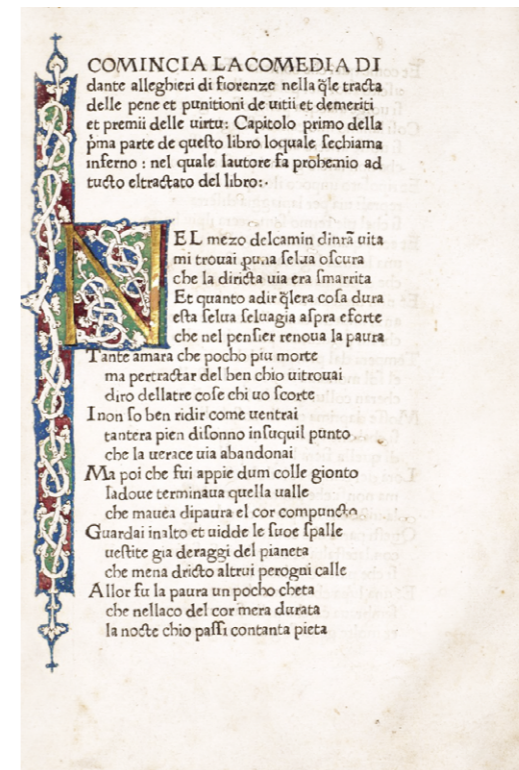 COMINCIA LA COMEDIA DI
dante alleghieri di fiorenze nella q̄le tracta
delle pene et punitioni de uitii et demeriti
et premii delle uirtu: Capitolo primo della
p̄ma parte de queſto libro loquale ſechiama
inferno : nel quale lautore fa prohemio ad
tucto eltractato del libro:·
NEL mezo delcamin dinr̄a uita
mi trouai p̱una ſelua oſcura
che la diricta uia era ſmarrita
Et quanto adir q̄lera coſa dura
eſta ſelua ſeluagia aſpra eforte
che nel penſier renoua la paura
Tante amara che pocho piu morte
ma pertractar del ben chio uitrouai
diro dellatre coſe chi uo ſcorte
I non ſo ben ridir come uentrai
tantera pien diſonno inſuquil punto
che la uerace uia abandonai
Ma poi che fui appie dum colle gionto
ladoue terminaua quella ualle
che mauea dipaura el cor compuncto
Guardai inalto et uidde le ſuoe ſpalle
ueſtite gia deraggi del pianeta
che mena dricto altrui perogni calle
Allor fu la paura un pocho cheta
che nellaco del cor mera durata
la nocte chio paſſi contanta pieta